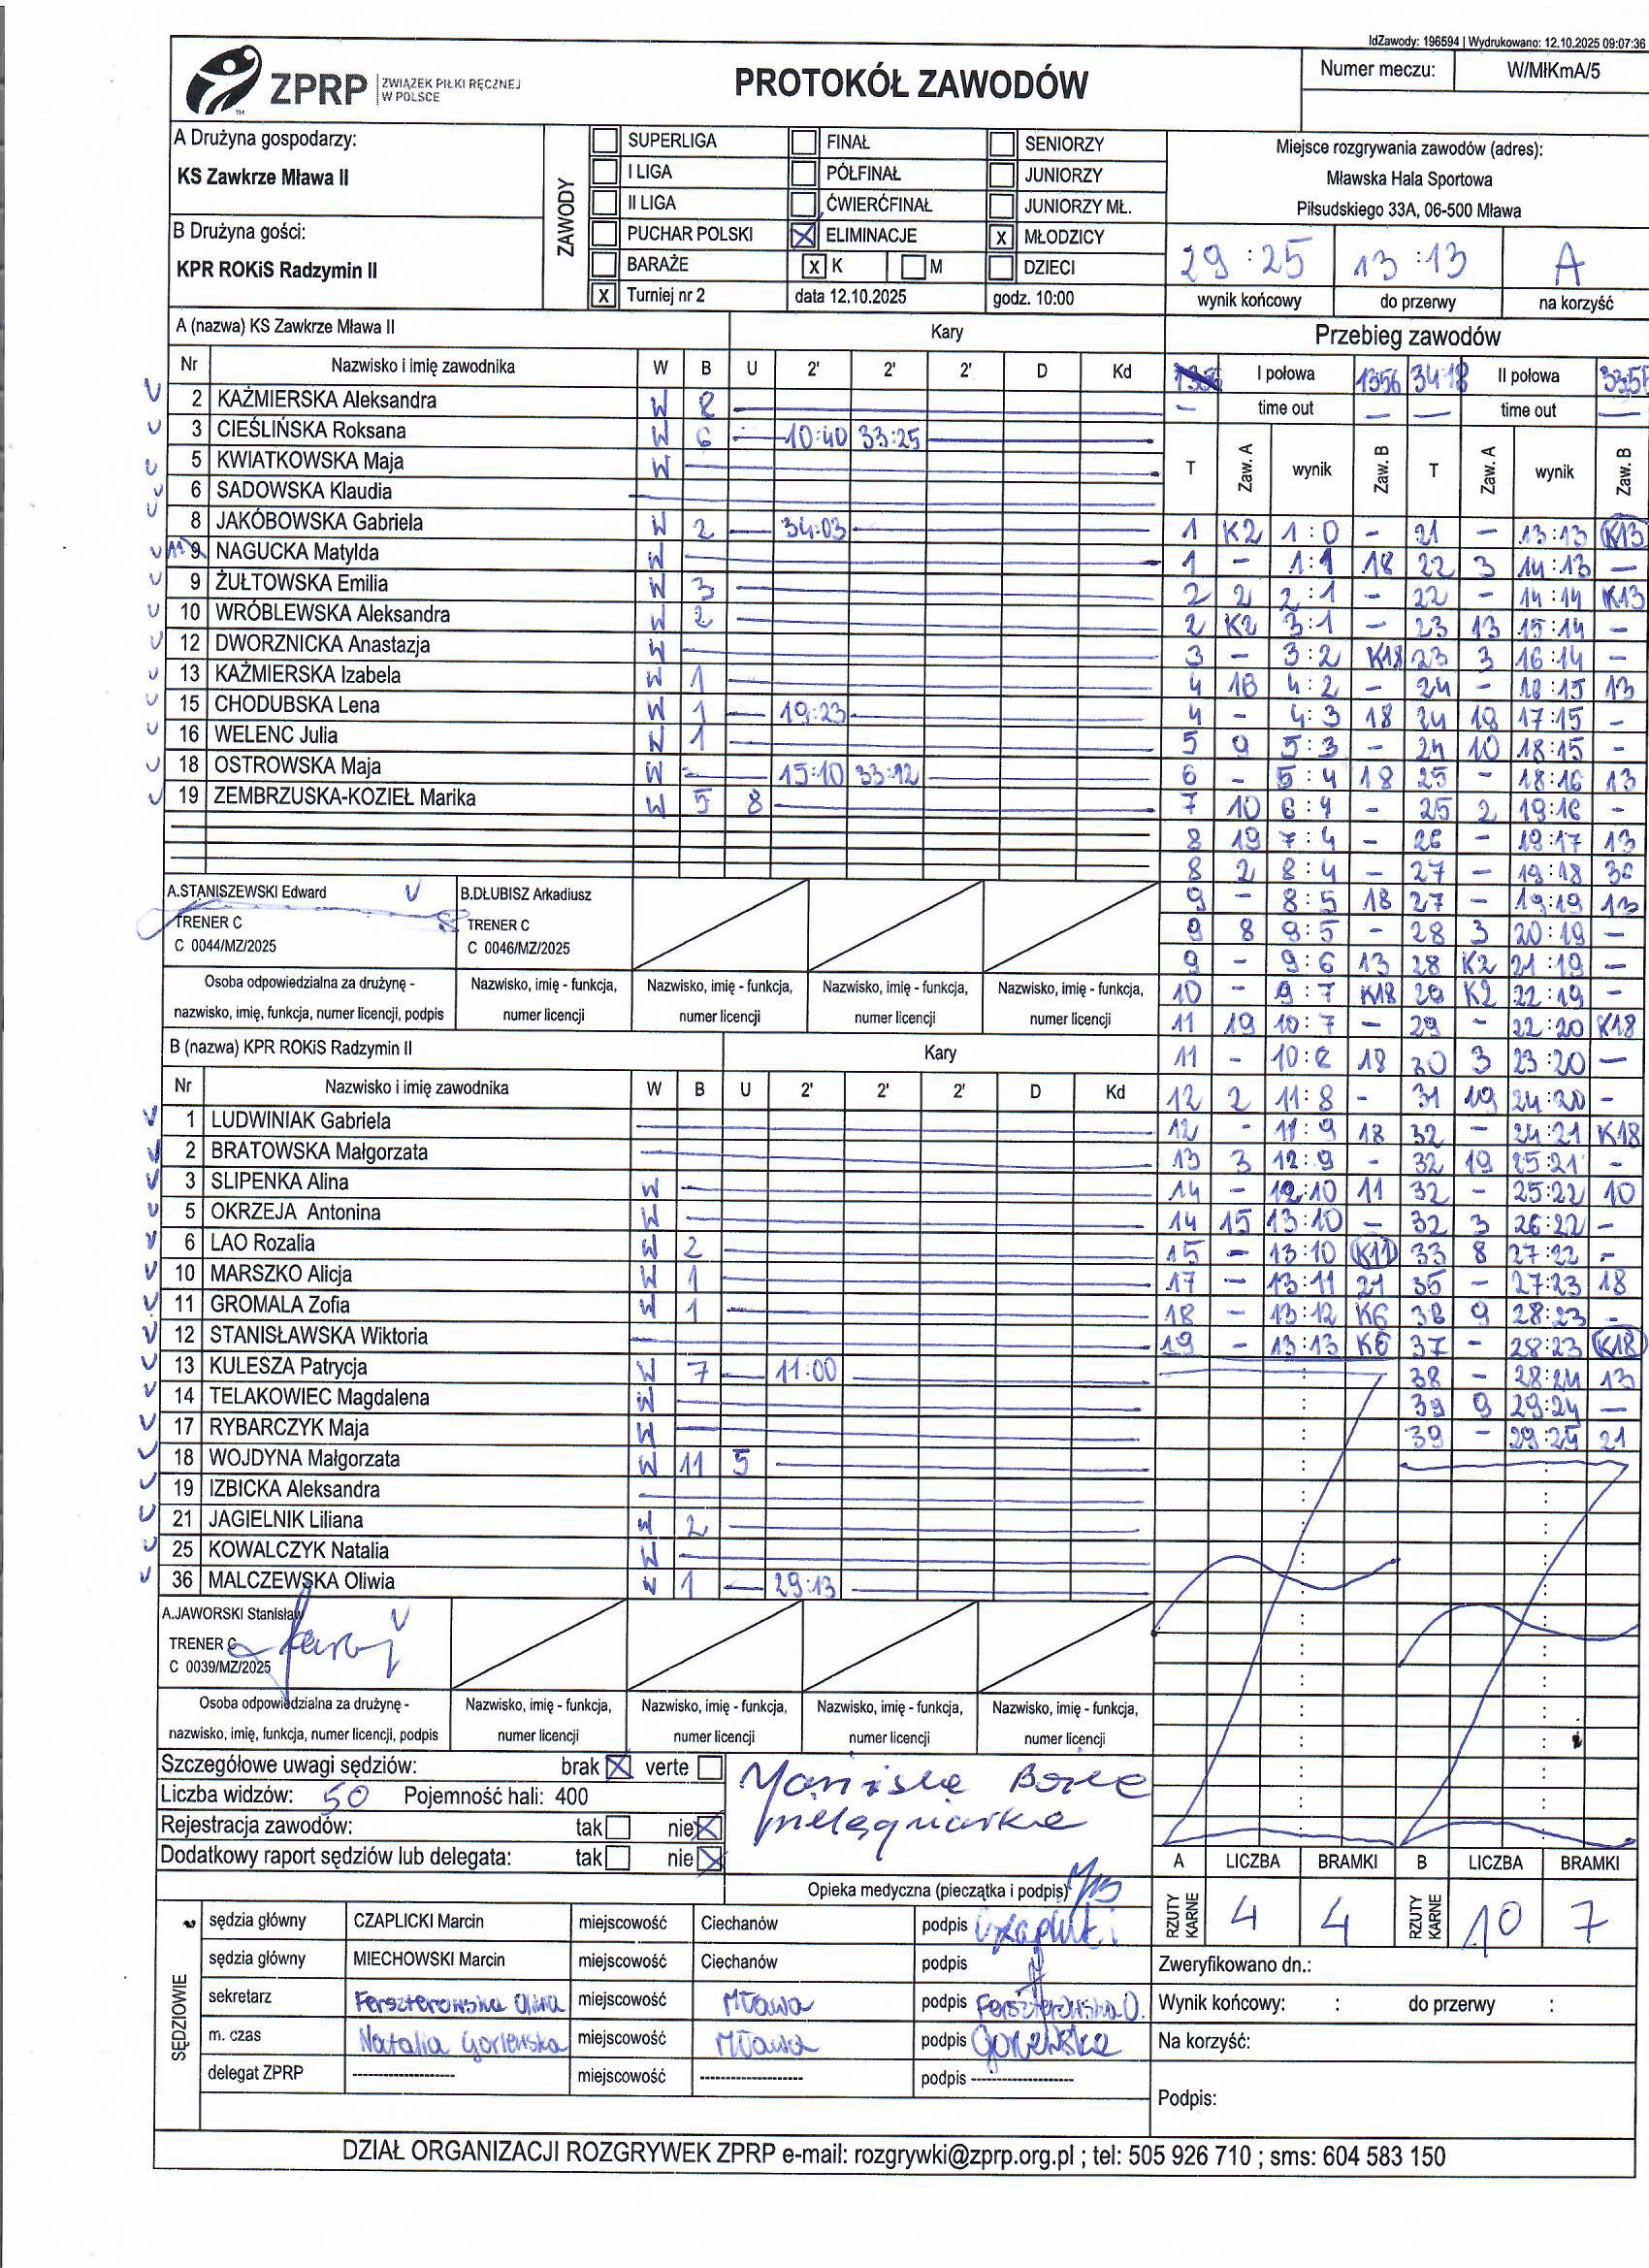 IdZawody: 196594 | Wydrukowano: 12.10.2025 09:07:36
ZPRP ZWIĄZEK PIŁKI RĘCZNEJ W POLSCE
PROTOKÓŁ ZAWODÓW
Numer meczu: W/MłKmA/5
A Drużyna gospodarzy:
KS Zawkrze Mława II
B Drużyna gości:
KPR ROKiS Radzymin II
ZAWODY
SUPERLIGA FINAŁ SENIORZY
I LIGA PÓŁFINAŁ JUNIORZY
II LIGA ĆWIERĆFINAŁ JUNIORZY MŁ.
PUCHAR POLSKI X ELIMINACJE X MŁODZICY
BARAŻE X K M DZIECI
X Turniej nr 2 data 12.10.2025 godz. 10:00
Miejsce rozgrywania zawodów (adres):
Mławska Hala Sportowa
Piłsudskiego 33A, 06-500 Mława
29:25 13:13 A
wynik końcowy do przerwy na korzyść
A (nazwa) KS Zawkrze Mława II Kary
Nr Nazwisko i imię zawodnika W B U 2' 2' 2' D Kd
2 KAŹMIERSKA Aleksandra W 8
3 CIEŚLIŃSKA Roksana W 6 10:40 33:25
5 KWIATKOWSKA Maja W
6 SADOWSKA Klaudia
8 JAKÓBOWSKA Gabriela W 2 34:03
9 NAGUCKA Matylda W
9 ŻUŁTOWSKA Emilia W 3
10 WRÓBLEWSKA Aleksandra W 2
12 DWORZNICKA Anastazja W
13 KAŹMIERSKA Izabela W 1
15 CHODUBSKA Lena W 1 19:23
16 WELENC Julia W 1
18 OSTROWSKA Maja W - 15:10 33:12
19 ZEMBRZUSKA-KOZIEŁ Marika W 5 8
A.STANISZEWSKI Edward B.DŁUBISZ Arkadiusz
TRENER C TRENER C
C 0044/MZ/2025 C 0046/MZ/2025
Osoba odpowiedzialna za drużynę - Nazwisko, imię - funkcja, Nazwisko, imię - funkcja, Nazwisko, imię - funkcja, Nazwisko, imię - funkcja,
nazwisko, imię, funkcja, numer licencji, podpis numer licencji numer licencji numer licencji numer licencji
B (nazwa) KPR ROKiS Radzymin II Kary
Nr Nazwisko i imię zawodnika W B U 2' 2' 2' D Kd
1 LUDWINIAK Gabriela
2 BRATOWSKA Małgorzata
3 SLIPENKA Alina W
5 OKRZEJA Antonina W
6 LAO Rozalia W 2
10 MARSZKO Alicja W 1
11 GROMALA Zofia W 1
12 STANISŁAWSKA Wiktoria
13 KULESZA Patrycja W 7 11:00
14 TELAKOWIEC Magdalena W
17 RYBARCZYK Maja W
18 WOJDYNA Małgorzata W 11 5
19 IZBICKA Aleksandra
21 JAGIELNIK Liliana W 2
25 KOWALCZYK Natalia W
36 MALCZEWSKA Oliwia W 1 29:13
A.JAWORSKI Stanisław
TRENER C
C 0039/MZ/2025
Osoba odpowiedzialna za drużynę - Nazwisko, imię - funkcja, Nazwisko, imię - funkcja, Nazwisko, imię - funkcja, Nazwisko, imię - funkcja,
nazwisko, imię, funkcja, numer licencji, podpis numer licencji numer licencji numer licencji numer licencji
Przebieg zawodów
I połowa 1356 34:18 II połowa
time out time out
T Zaw. A wynik Zaw. B T Zaw. A wynik Zaw. B
1 K2 1:0 - 21 - 13:13 K13
1 - 1:1 18 22 3 14:13 -
2 2 2:1 - 22 - 14:14 K13
2 K2 3:1 - 23 13 15:14 -
3 - 3:2 K18 23 3 16:14 -
4 16 4:2 - 24 - 16:15 13
4 - 4:3 18 24 19 17:15 -
5 9 5:3 - 24 10 18:15 -
6 - 5:4 18 25 - 18:16 13
7 10 6:4 - 25 2 19:16 -
8 19 7:4 - 26 - 19:17 13
8 2 8:4 - 27 - 19:18 36
9 - 8:5 18 27 - 19:19 13
9 8 9:5 - 28 3 20:19 -
9 - 9:6 13 28 K2 21:19 -
10 - 9:7 K18 29 K2 22:19 -
11 19 10:7 - 29 - 22:20 K18
11 - 10:8 18 30 3 23:20 -
12 2 11:8 - 31 19 24:20 -
12 - 11:9 18 32 - 24:21 K18
13 3 12:9 - 32 19 25:21 -
14 - 12:10 11 32 - 25:22 10
14 15 13:10 - 32 3 26:22 -
15 - 13:10 K11 33 8 27:22 -
17 - 13:11 21 35 - 27:23 18
18 - 13:12 K6 36 9 28:23 -
19 - 13:13 K6 37 - 28:23 K18
38 - 28:24 13
39 9 29:24 -
39 - 29:25 21
Szczegółowe uwagi sędziów: brak X verte
Liczba widzów: 50 Pojemność hali: 400
Rejestracja zawodów: tak nie X
Dodatkowy raport sędziów lub delegata: tak nie X
pielęgniarka
Opieka medyczna (pieczątka i podpis)
A LICZBA BRAMKI B LICZBA BRAMKI
RZUTY KARNE 4 4 RZUTY KARNE 10 7
SĘDZIOWIE
sędzia główny CZAPLICKI Marcin miejscowość Ciechanów podpis Czaplicki
sędzia główny MIECHOWSKI Marcin miejscowość Ciechanów podpis
sekretarz Ferszterowska Oliwia miejscowość Mława podpis Ferszterowska O.
m. czas Natalia miejscowość Mława podpis
delegat ZPRP -------------------- miejscowość -------------------- podpis --------------------
Zweryfikowano dn.:
Wynik końcowy: : do przerwy :
Na korzyść:
Podpis:
DZIAŁ ORGANIZACJI ROZGRYWEK ZPRP e-mail: rozgrywki@zprp.org.pl ; tel: 505 926 710 ; sms: 604 583 150